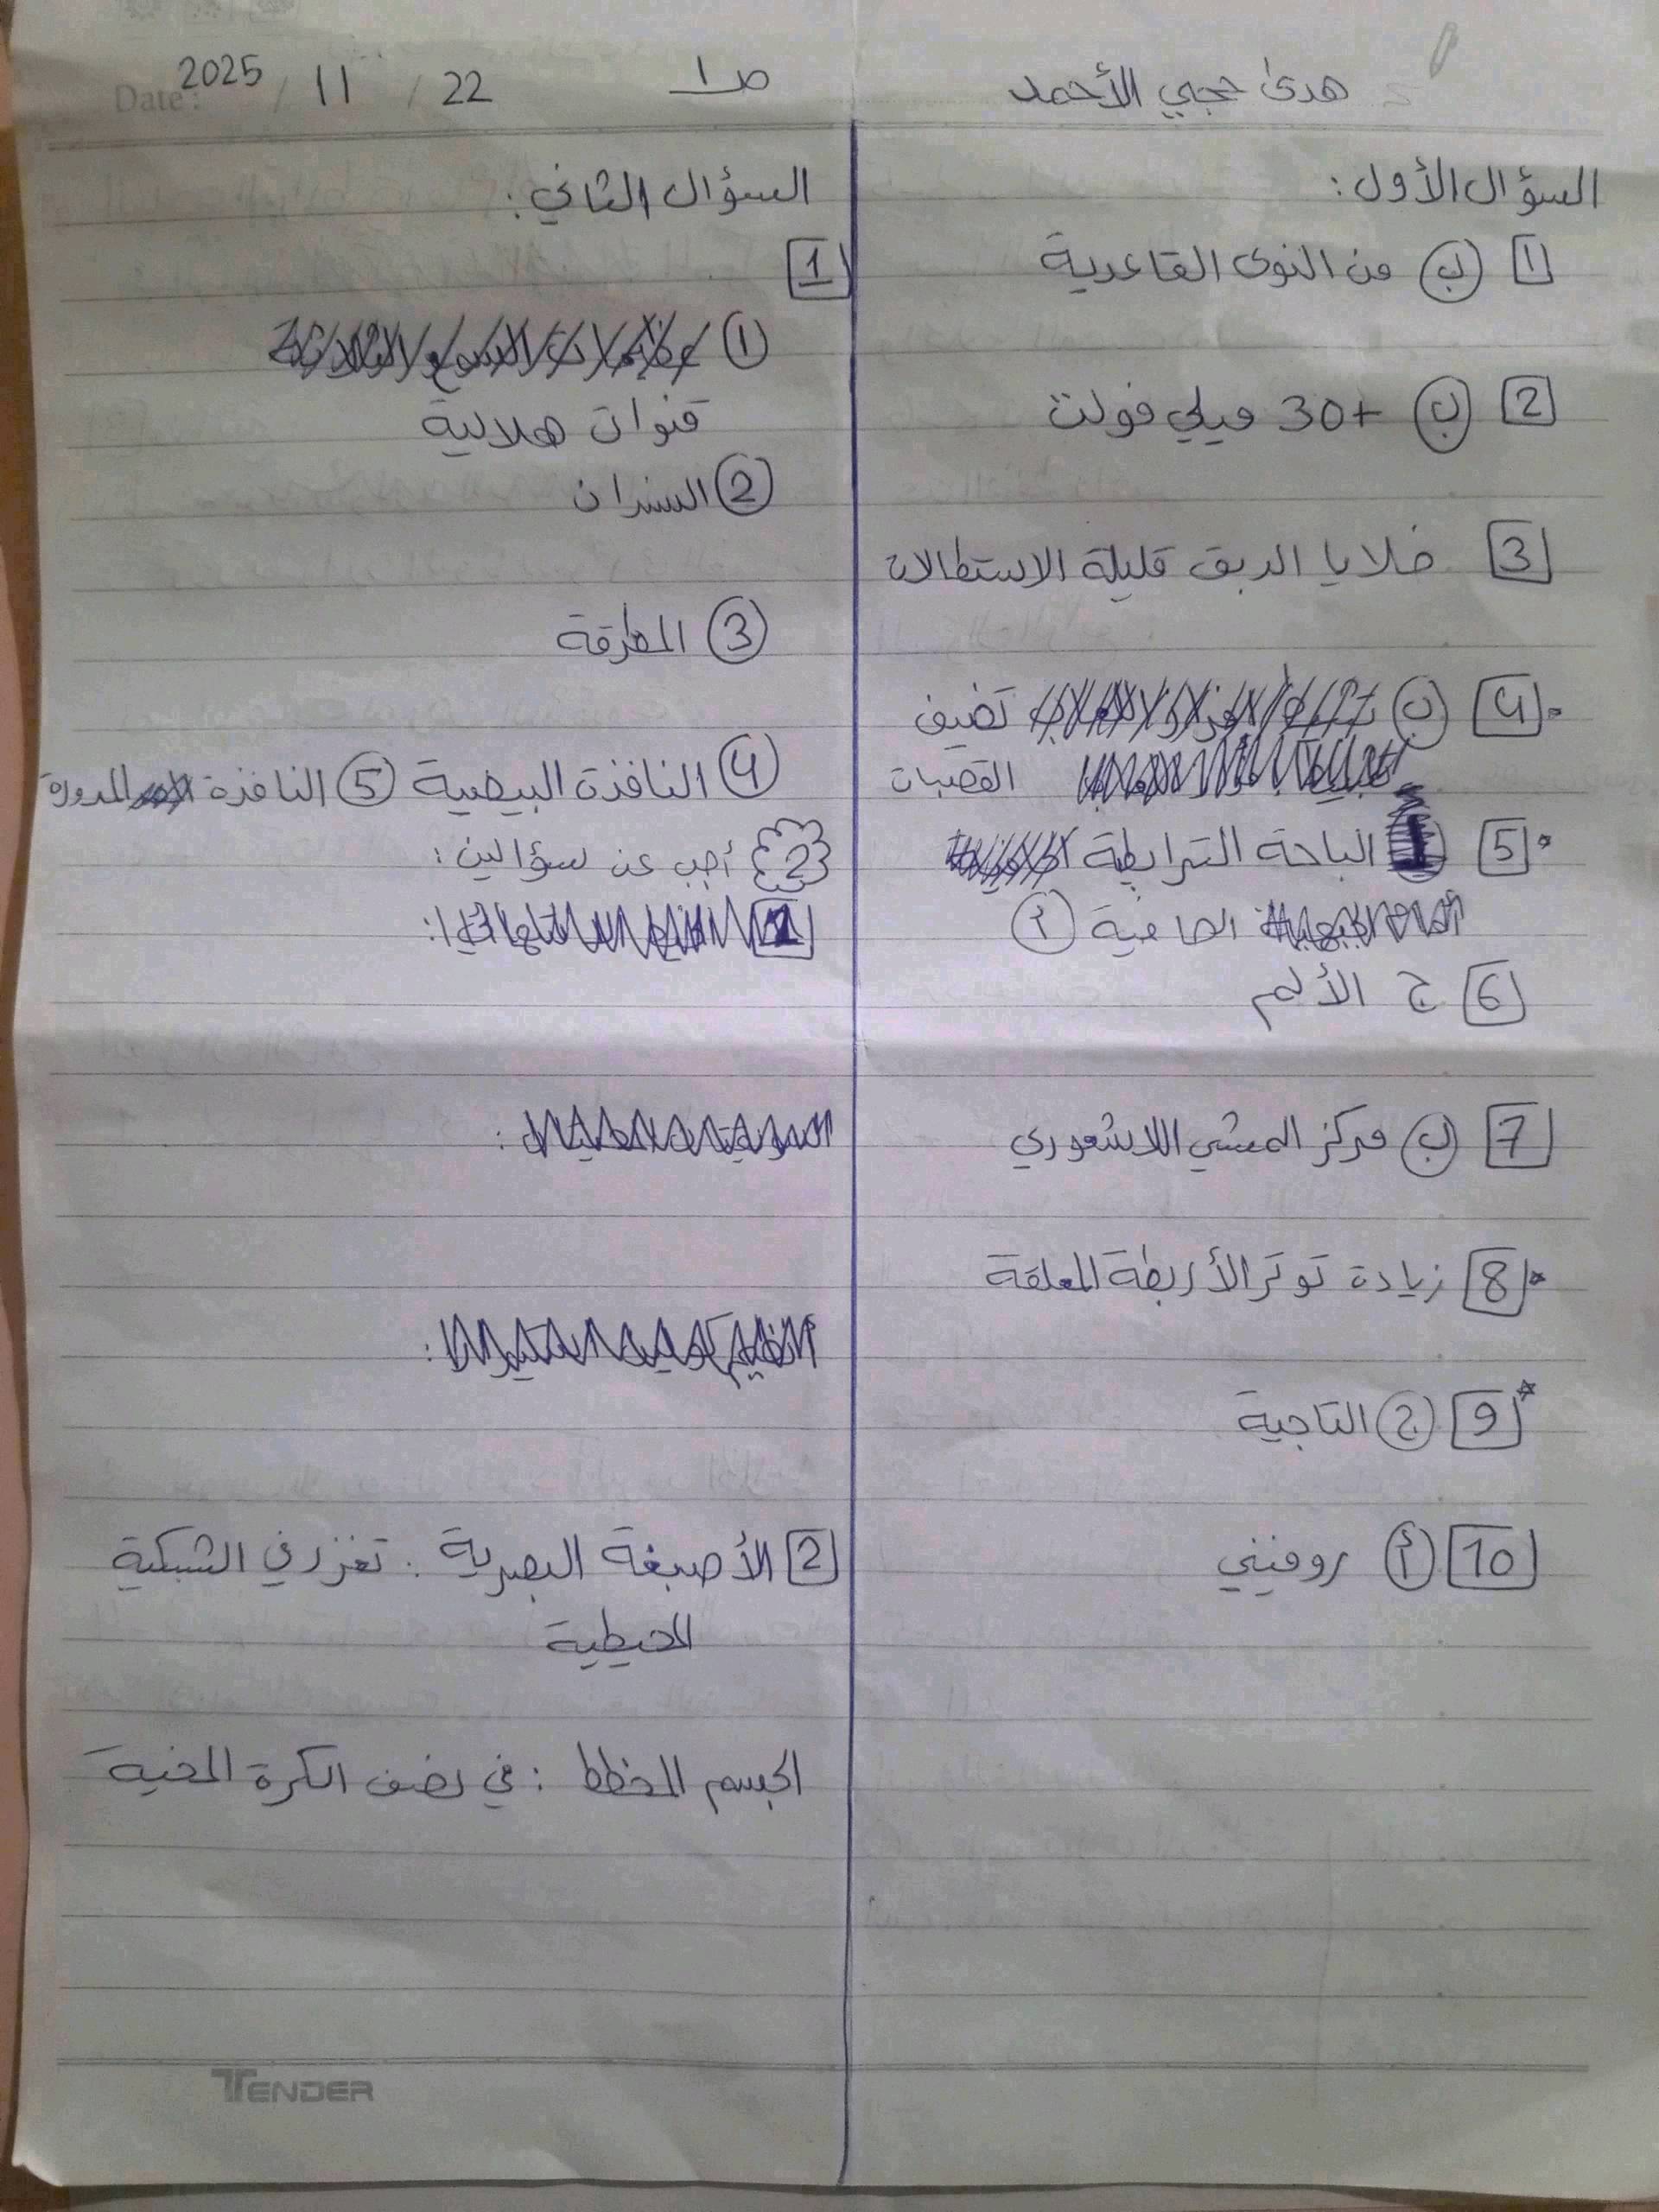 هدى حجي الأحمد
ص1
Date: 2025 / 11 / 22
السؤال الأول:
1 ب من النوى القاعدية
2 ب +30 ميلي فولت
3 خلايا الدبق قليلة الاستطالات
4 ب تضيف
القصبات
5 الباحة الترابطية
الحافية أ
6 ج الألم
7 ب مركز المشي اللاشعوري
8 زيادة توتر الأربطة المعلقة
9 ج التاجية
10 أ روفيني
السؤال الثاني:
1
1
قنوات هلالية
2 السندان
3 المطرقة
4 النافذة البيضية 5 النافذة المدورة
2 أجب عن سؤالين:
2 الأصبغة البصرية: تغزر في الشبكية
المحيطية
الجسم المخطط: في نصف الكرة المخية
TENDER